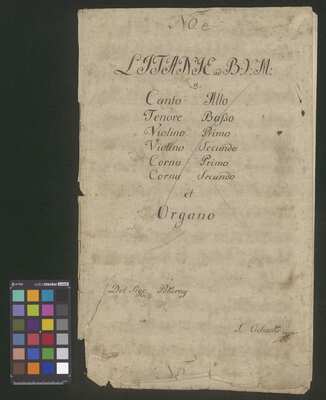 LITANIE de B.V.M.
a
Canto Alto
Tenore Basso
Violino Primo
Violino Secundo
Corno Primo
Corno Secundo
et
Organo
Del Sigr